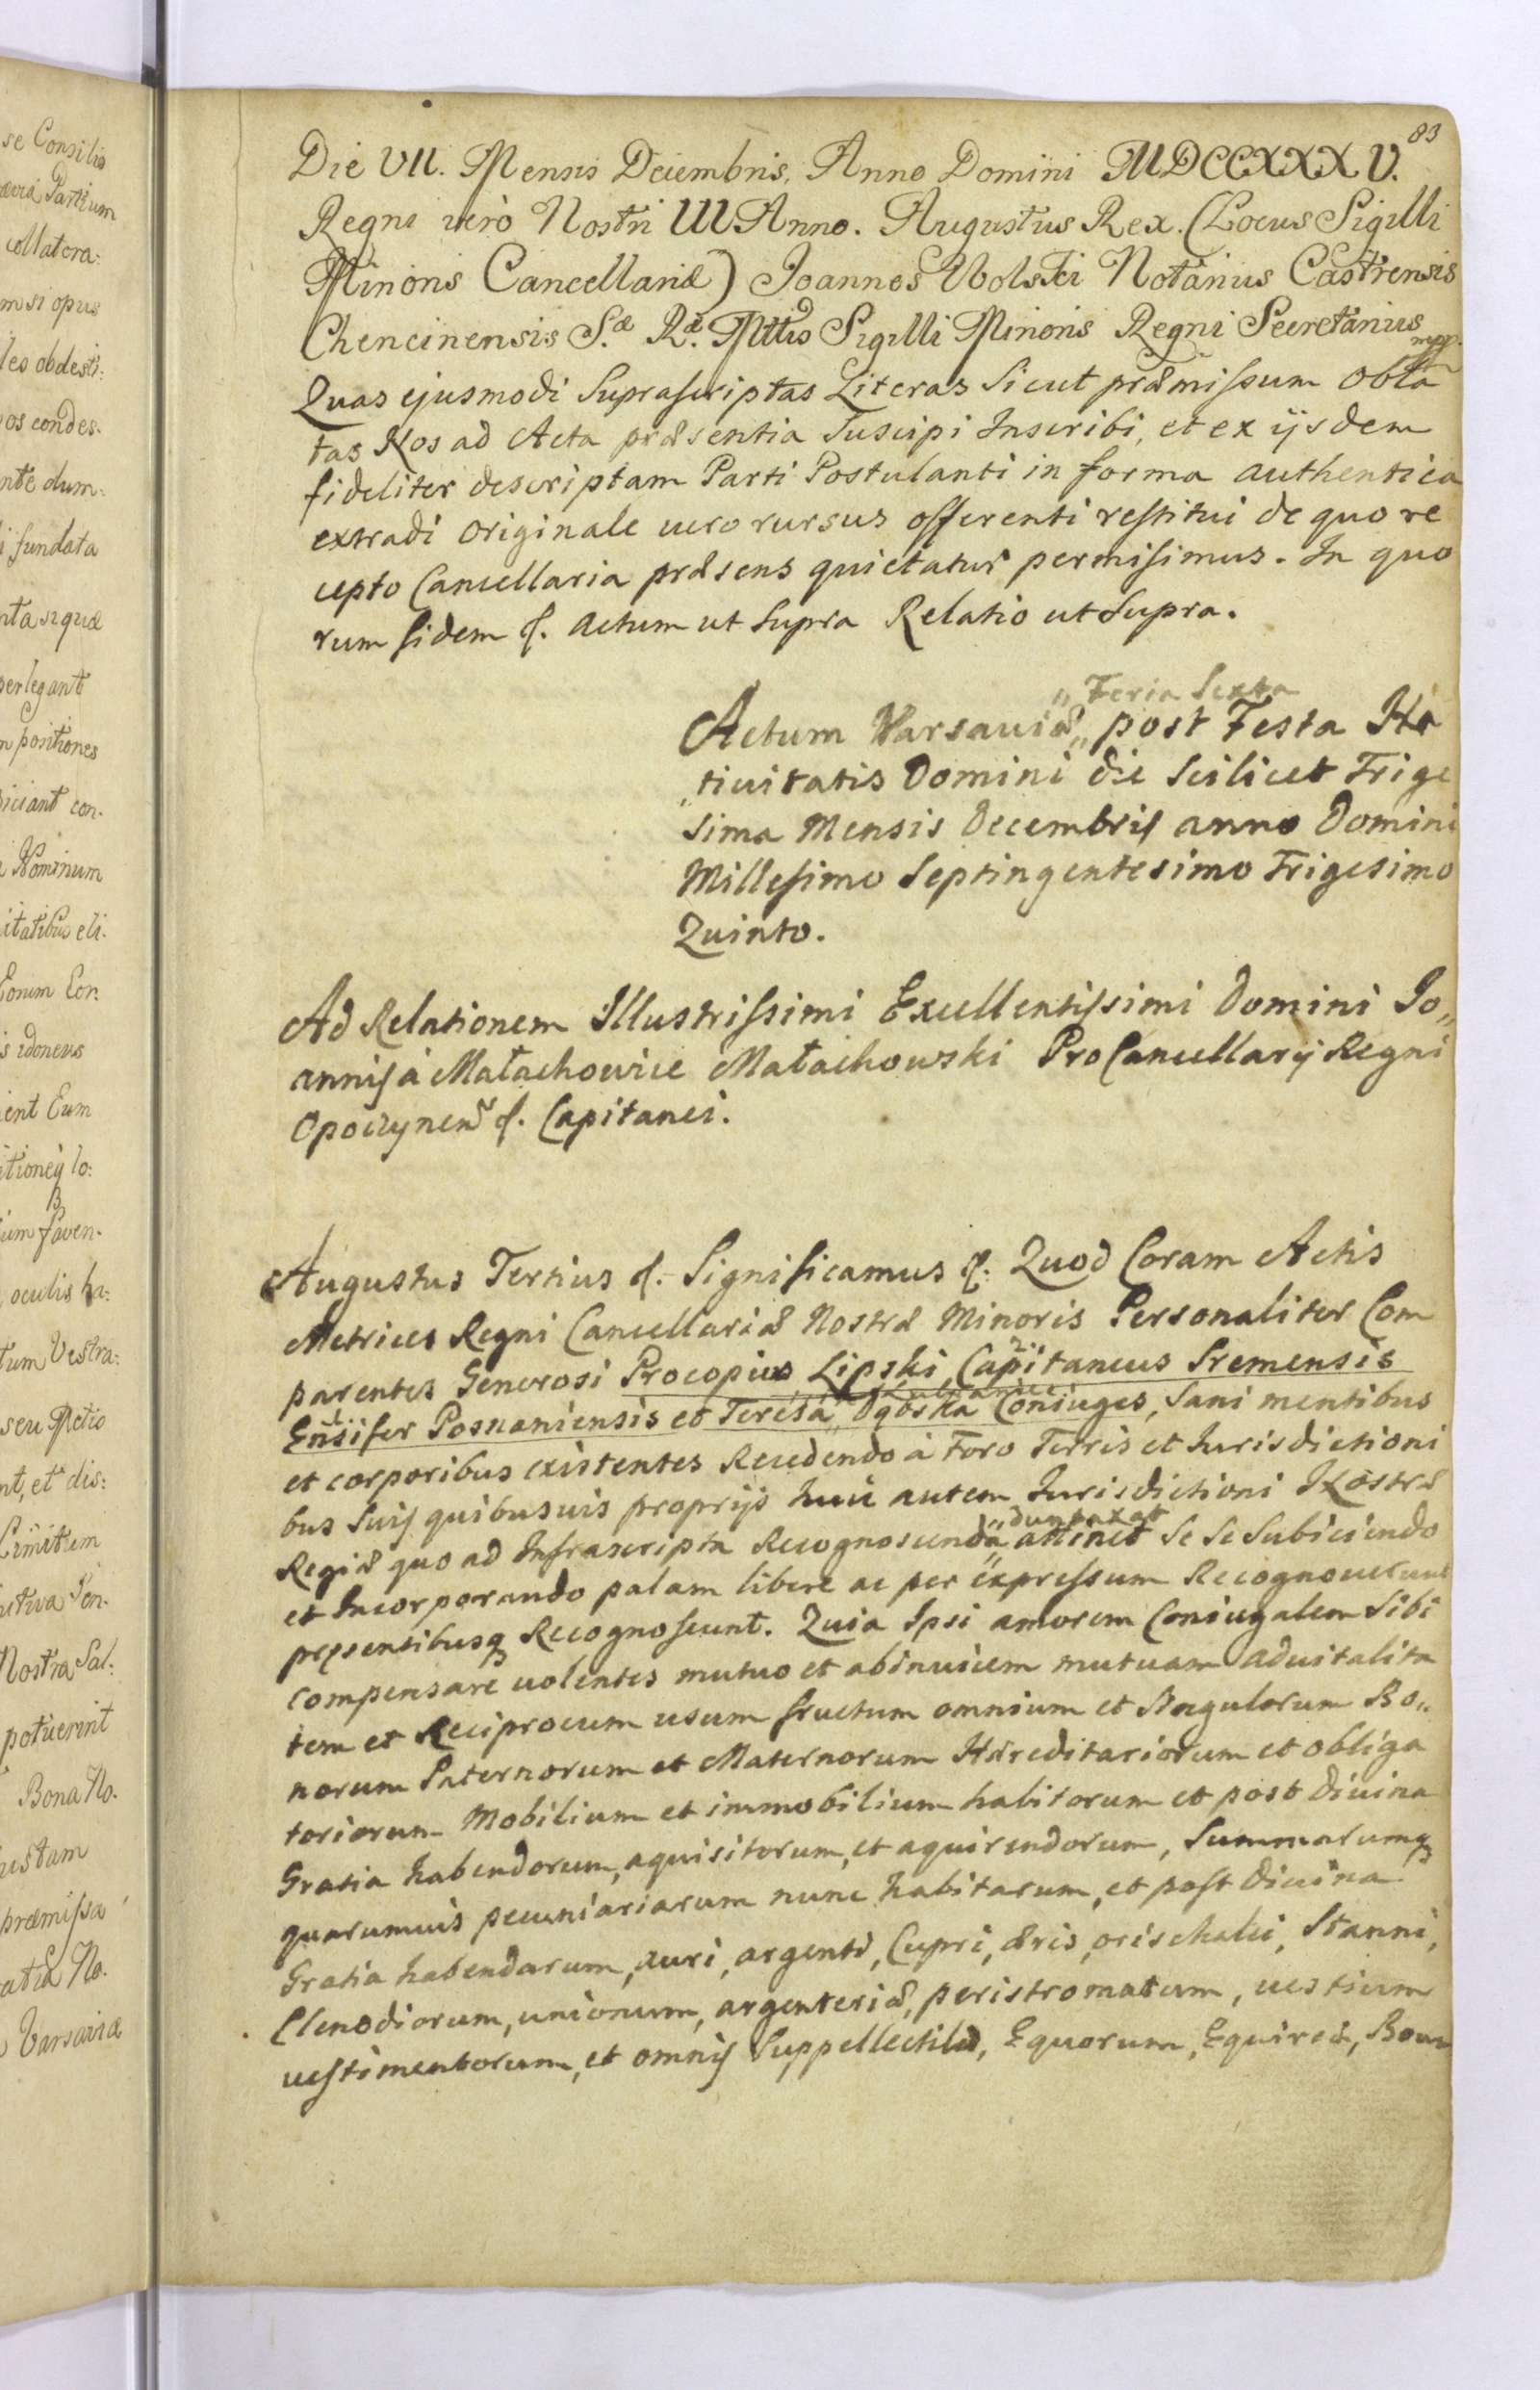 se Consilio
ævia Partium
collatera:
m si opus
les obdesti:
os condes.
nte dum:
i fundata
nta siquæ
perlegant
positiones
iciant con.
Nominum
itatibus eli.
Eorum Cor:
s idoneus
ient Eum
itioneij lo:
um faven.
oculis ha:
tum Vestra:
seu Actio
nt, et dis:
Limitum
Nostra Sal:
potuerint
Bona No.
ustam
præmissa
atia No.
Varsaviæ
83
Die VII. Mensis Decembris, Anno Domini MDCCXXXV.
Regni verò Nostri III Anno. Augustus Rex. (Locus Sigilli
Minoris Cancellariæ) Joannes Wolski Notarius Castrensis
Chencinensis S.æ R.æ Mttis Sigilli Minoris Regni Secretarius mpp.
Quas ejusmodi Suprascriptas Literas Sicut præmissum obla
tas Nos ad Acta præsentia Suscipi Inscribi, et ex ijsdem
fideliter descriptam Parti Postulanti in forma authentica
extradi originale uero rursus offerenti restitui de quo re
cepto Cancellaria præsens quietatur permisimus. In quo
rum fidem &. actum ut supra Relatio ut Supra.
„Feria Sexta
Actum Varsauiæ„ post Festa Na
„tiuitatis Domini die scilicet Trige
sima Mensis Decembris anno Domini
Millesimo Septingentesimo Trigesimo
Quinto.
Ad Relationem Illustrissimi Excellentissimi Domini Jo„
annis à Małachowice Małachowski ProCancellarij Regni
Opoczynen &. Capitanei.
Augustus Tertius &. Significamus &. Quod Coram Actis
Metrices Regni Cancellariæ Nostræ Minoris Personaliter Com
parentes Generosi Procopius Lipski, Capitaneus Sremensis
Ensifer Posnaniensis et Teresa, Ogorska Coniuges, sani mentibus
et corporibus existentes Recedendo à Foro Terris et Jurisdictioni
bus Suis quibusuis proprijs huic autem Jurisdictioni Nostræ
„duntaxat
Regiæ quo ad Infrascripta Recognoscenda„ attinet Se Se Subiciendo
et Incorporando palam libere ac per expressum Recognouerunt
presentibusq Recognoscunt. Quia Ipsi amorem Coniugalem Sibi
compensare uolentes mutuo et abinuicem mutuam aduitalita
tem et Reciprocum usum fructum omnium et Singulorum Bo„
norum Paternorum et Maternorum Hæreditariorum et obliga
toriorum Mobilium et immobilium habitorum et post diuina
Gratia habendorum, aquisitorum, et aquirendorum, Summarumq
quarumuis pecuniariarum nunc habitarum, et post diuina
Gratia habendarum, auri, argenti, Cupri, æris, orischalci, Stanni,
Clenodiorum, unionum, argenteriæ, peristromatum, uestium
uestimentorum, et omnis Suppellectilis, Equorum, Equireæ, Boum